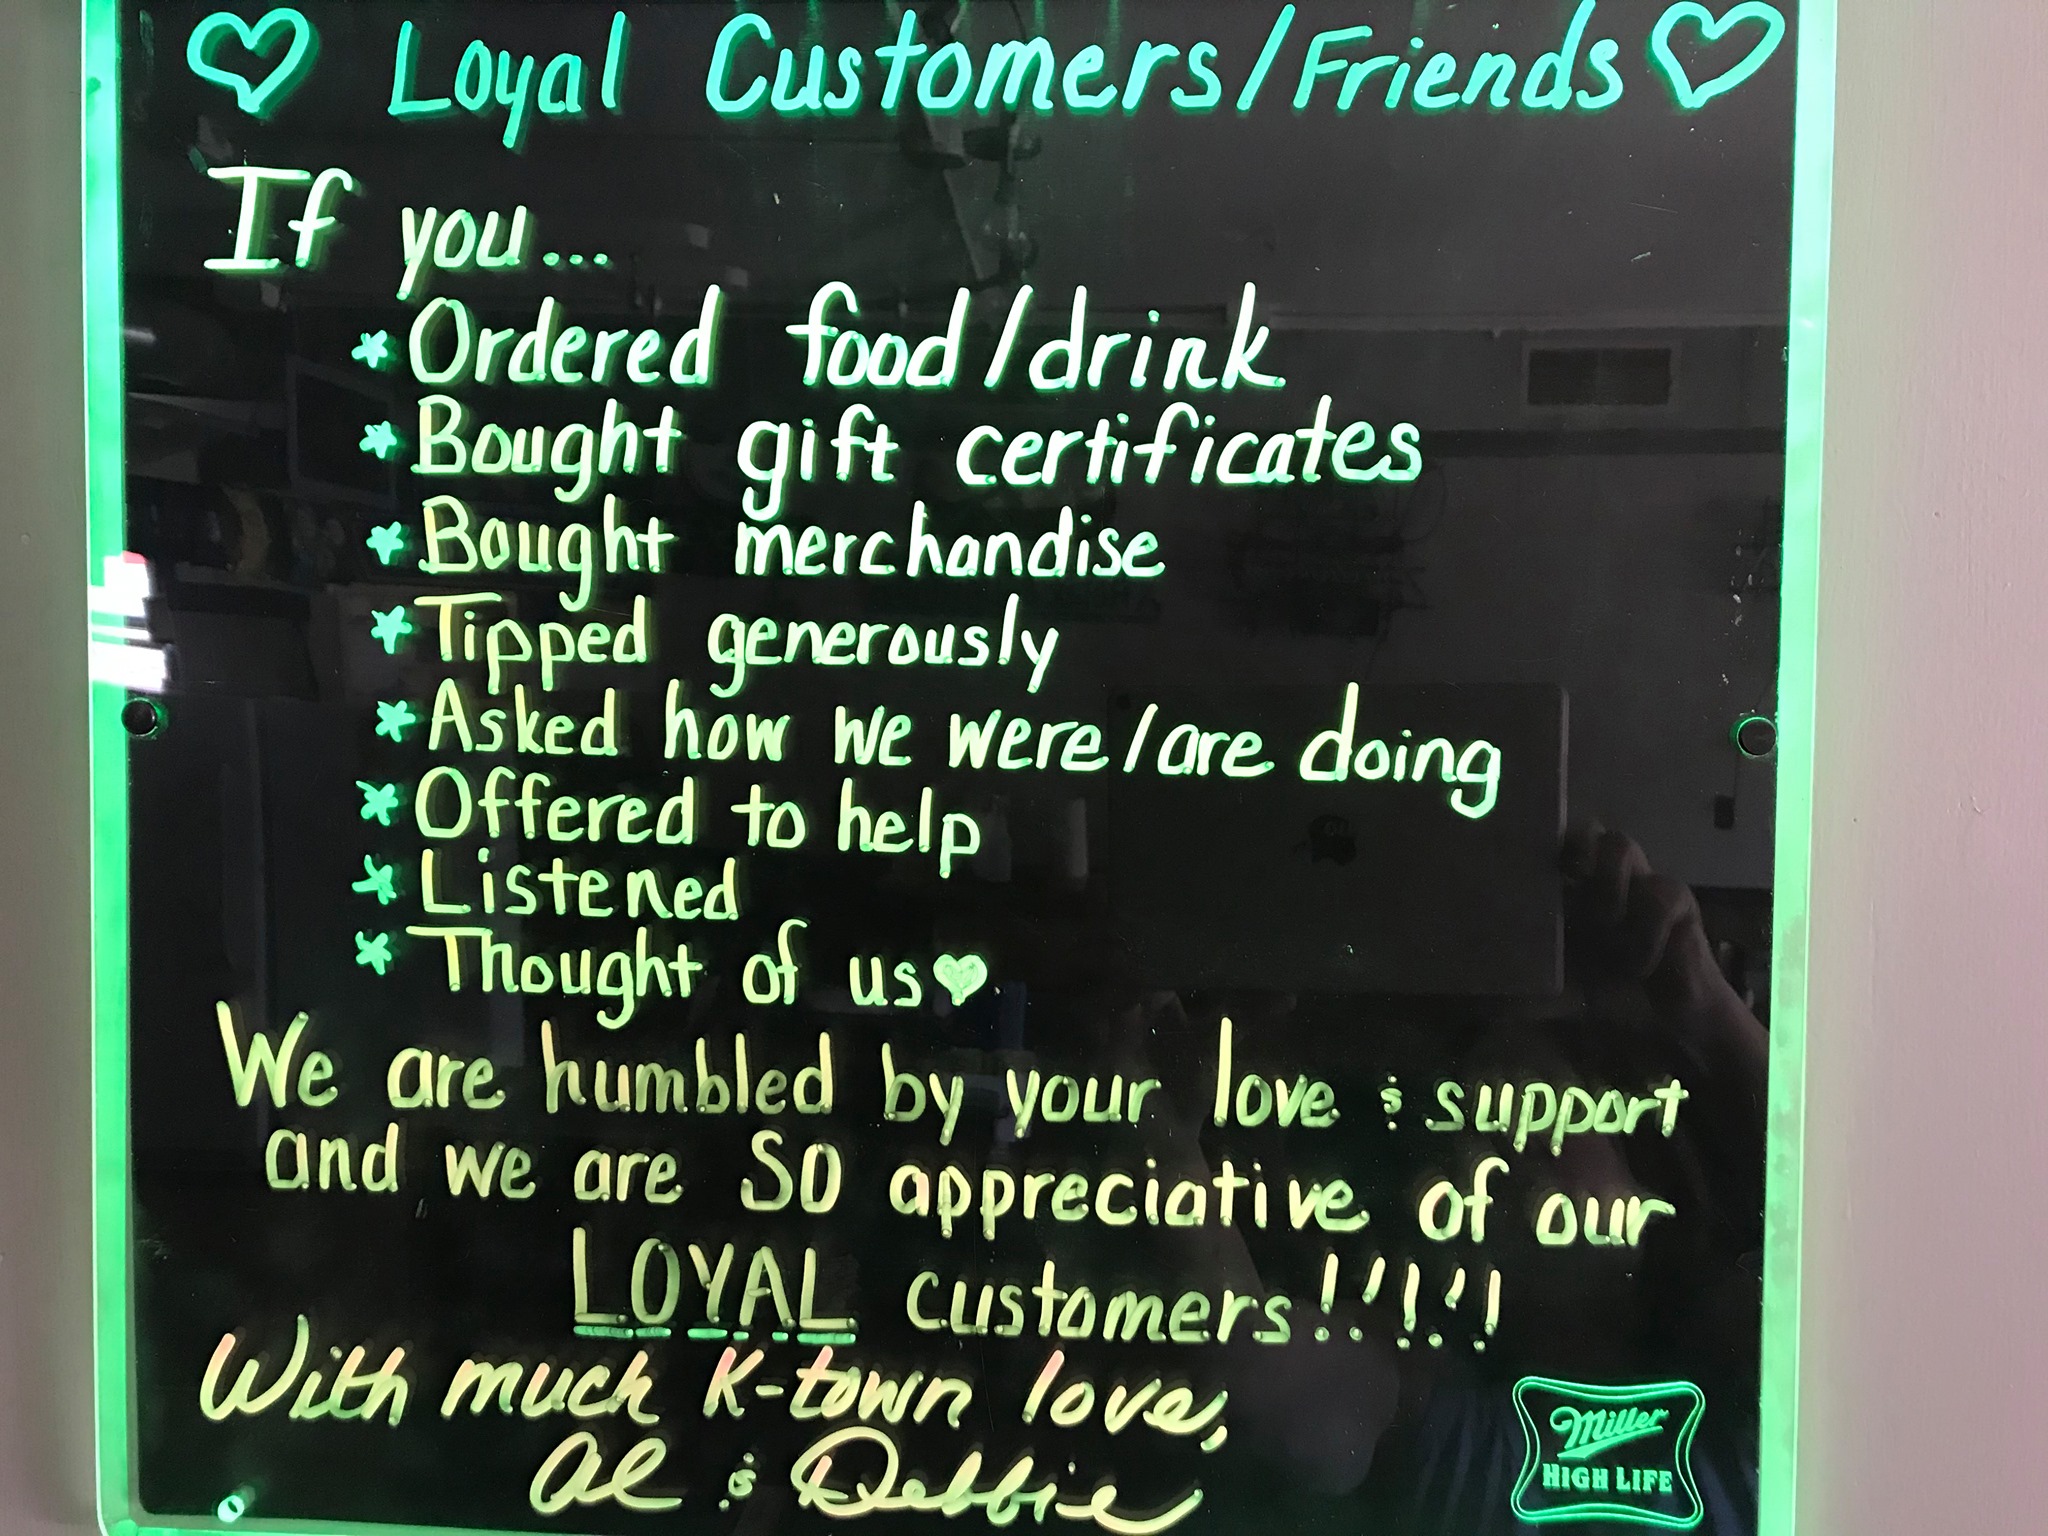 ♡ Loyal Customers/Friends ♡
If you...
* Ordered food/drink
* Bought gift certificates
* Bought merchandise
* Tipped generously
* Asked how we were/are doing
* Offered to help
* Listened
* Thought of us ♥
We are humbled by your love & support
and we are SO appreciative of our
LOYAL customers!!!!!
With much K-town love,
Al & Debbie
Miller
HIGH LIFE